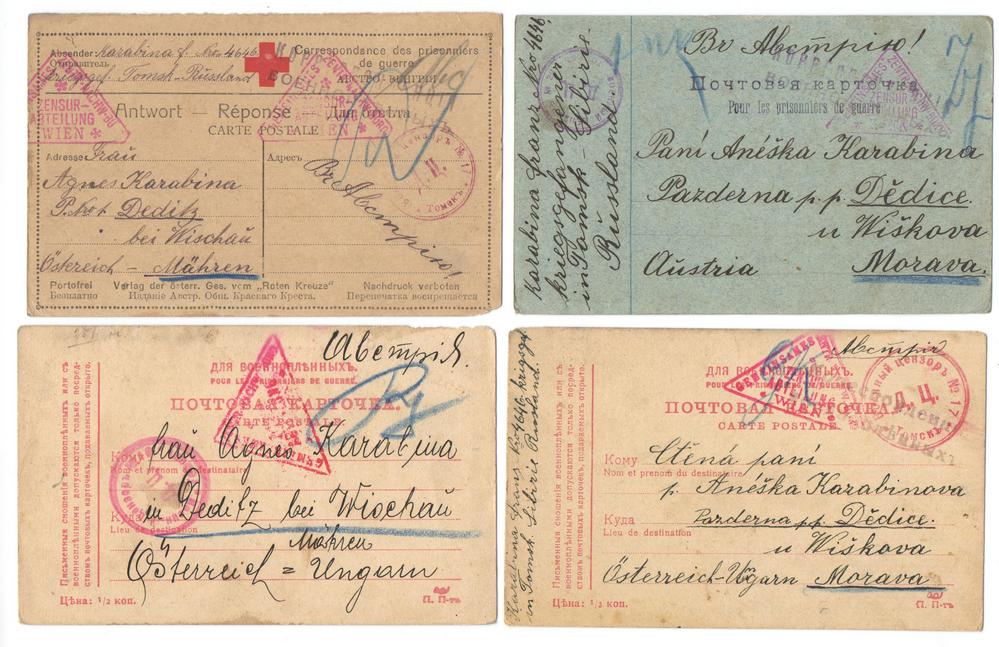 Absender: Karabina f. Nro 4646
Отправитель
Kriegsgef. Tomsk-Russland
Correspondance des prisonniers
de guerre.
АВСТРО-ВЕНГРИЯ
ZENSUR-
ABTEILUNG
WIEN
ZENSUR-
WIEN
Antwort — Réponse — Для отвѣта
CARTE POSTALE
Adresse: Frau
Адресъ
Agnes Karabina
P. Nro 1 Deditz
bei Wischau
Österreich – Mähren
Вг Австрію!
Цензоръ № 17
Томскъ
Portofrei Verlag der österr. Ges. vom „Roten Kreuze" Nachdruck verboten
Безплатно Издание Австр. Общ. Краснаго Креста. Перепечатка воспрещается
Karabina Franz Nro 4646.
Kriegsgefangener
in Tomsk-Sibirie.
Russland
Вг Австрію!
Почтовая карточка
Pour les prisonniers de guerre
Paní Anéška Karabina
Pazderna p.p. Dědice.
u Wiškova
Austria Morava.
Австрія.
ДЛЯ ВОЕННОПЛѢННЫХЪ.
POUR LES PRISONNIERS DE GUERRE.
ПОЧТОВАЯ КАРТОЧКА.
CARTE POSTALE.
Frau Agnes Karabina
Nom et prénom du destinataire
Куда
in Deditz bei Wischau
Lieu de destination
Mähren
Österreich = Ungarn
Письменныя сношенія военноплѣнныхъ или съ
военноплѣнными допускаются только посред-
ствомъ почтовыхъ карточекъ, подаваемыхъ открыто.
Цѣна: 1/2 коп.
П. П-тъ
Karabina Franz Nro 4646 krigsgf.
in Tomsk Sibirie Russland.
Австрія
ДЛЯ ВОЕННОПЛѢННЫХЪ.
POUR LES PRISONNIERS DE GUERRE.
ПОЧТОВАЯ КАРТОЧКА.
CARTE POSTALE.
Военный цензоръ № 17
Д. Ц.
Томскъ
Кому Ctěná paní
Nom et prénom du destinataire
p. Anéška Karabinova
Куда Pazderna p.p. Dědice.
Lieu de destination
u Wiškova
Österreich-Ugarn Morava
Письменныя сношенія военноплѣнныхъ или съ
военноплѣнными допускаются только посред-
ствомъ почтовыхъ карточекъ, подаваемыхъ открыто.
Цѣна: 1/2 коп.
П. П-тъ